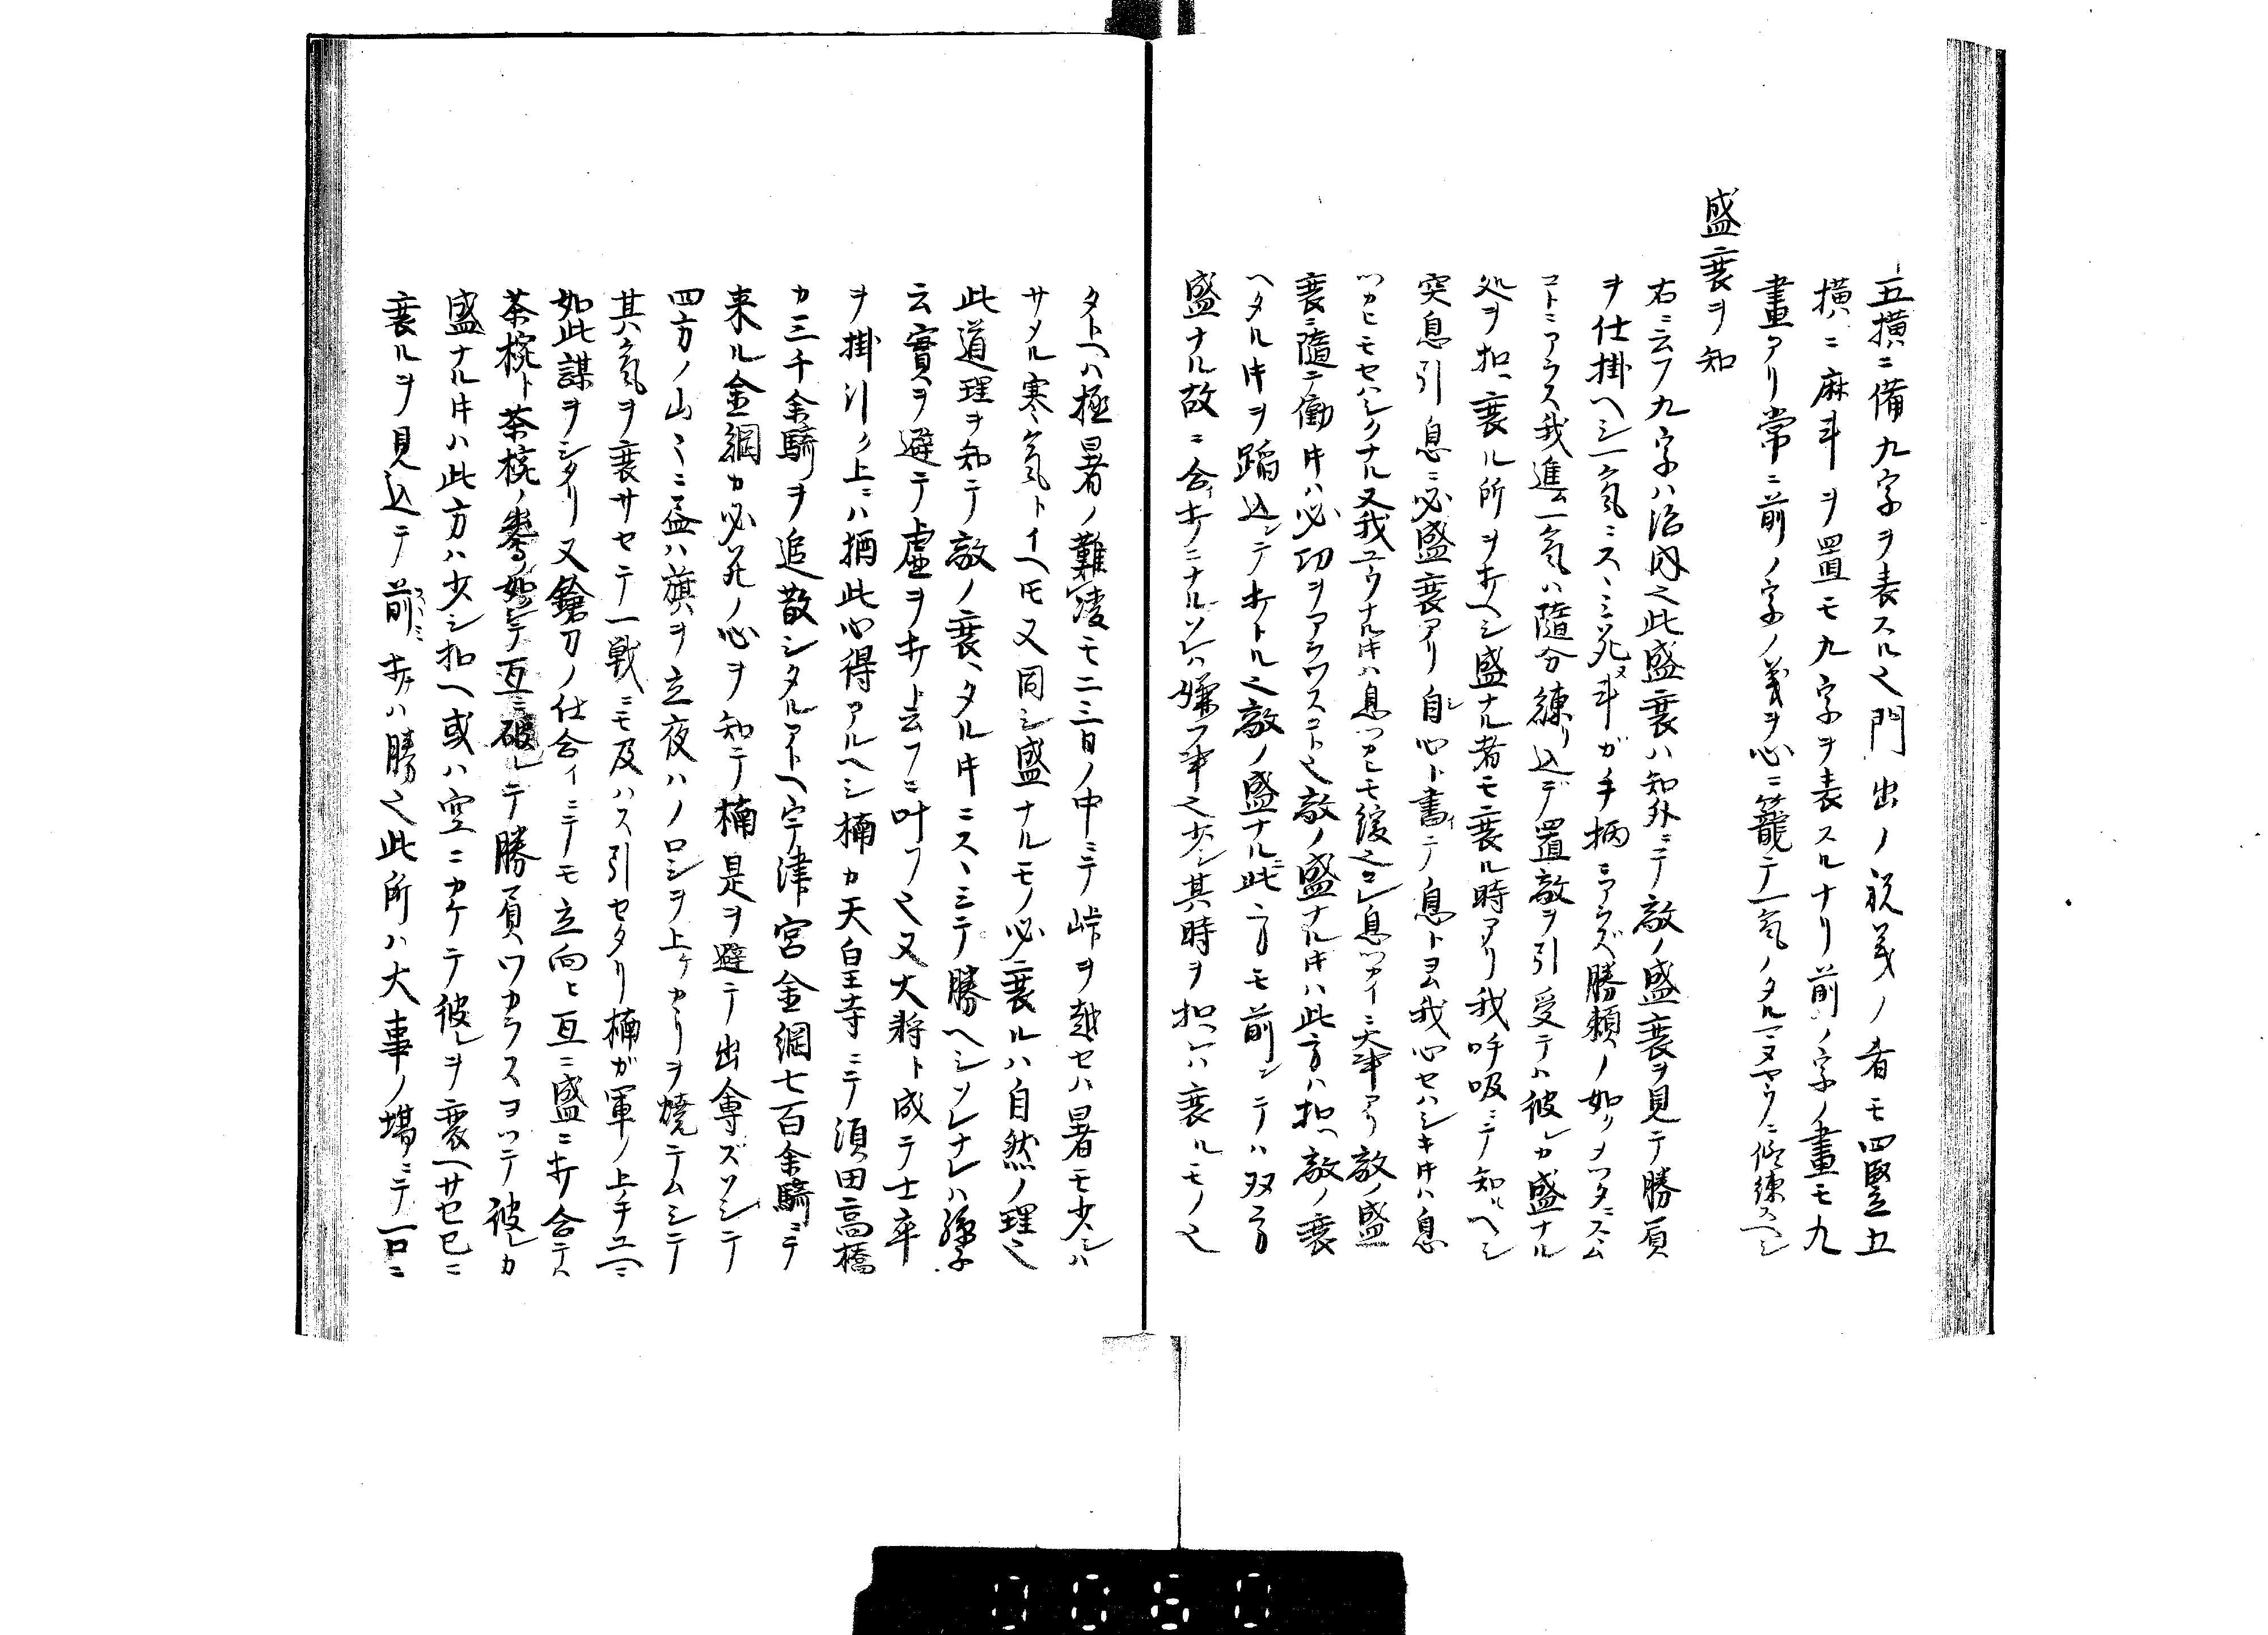 五横ニ備九字ヲ表スル也門出ノ祝義ノ肴モ四竪五
横ニ麻斗ヲ置モ九字ヲ表スルナリ前ノ字ノ畫モ九
畫アリ常ニ前ノ字ノ義ヲ心ニ籠テ一氣ノタルマヌヤウニ修練スヘシ
盛衰ヲ知
右ニ云フ九字ハ治内也此盛衰ハ知外ニテ敵ノ盛衰ヲ見テ勝負
ヲ仕掛ヘシ一氣ニスヽミ死ヌ斗ガ手柄ニアラズ勝頼ノ如クメツタニスヽム
コトニアラス我進ム一氣ハ隨分練リ込デ置敵ヲ引受テハ彼レカ盛ナル
処ヲ扣ヘ衰ル所ヲ打ヘシ盛ナル者モ衰ル時アリ我呼吸ニテ知ルヘシ
突息引息ニ必盛衰アリ自心ト書イテ息トヨム我心セハシキ时ハ息
ツカヒモセハシクナル又我ユウナル时ハ息ツカヒモ緩也コレ息ツカイニ大事アリ敵ノ盛
衰ニ隨テ働时ハ必切ヲアラワスコト也敵ノ盛ナル时ハ此方ハ扣ヘ敵ノ衰
ヘタル时ヲ蹈込ンテ打トル也敵ノ盛ナルニ此方モ前ンテハ双方
盛ナル故ニ合イ打ニナルソレハ嫌フ事也少シ其時ヲ扣レハ衰ルモノ也
タトヘハ極暑ノ難凌モ二三日ノ中ニテ峠ヲ越セハ暑モ少シハ
サメル寒氣トイヘ𪜈又同シ盛ナルモノ必衰ルハ自然ノ理也
此道理ヲ知テ敵ノ衰ヽタル时ニスヽミテ勝ヘシソレナレハ孫子
云實ヲ避テ虚ヲ打ト云フニ叶フ也又大將ト成テ士卒
ヲ掛引ク上ニハ猶此心得アルヘシ楠カ天皇寺ニテ須田高橋
カ三千余騎ヲ追散シタルアトヘ宇津宮金綱七百余騎ニテ
来ル金綱カ必死ノ心ヲ知テ楠是ヲ避テ出會ズソシテ
四方ノ山々ニ昼ハ旗ヲ立夜ハノロシヲ上ケカヽリヲ燒テムシテ
其氣ヲ衰サセテ一戦ニモ及ハス引セタリ楠ガ軍ノ上手ユヘニ
如此謀ヲシタリ又鎗刀ノ仕合イニテモ立向ヒ互ニ盛ニ打合テハ
茶椀ト茶椀ノ如ニテ互ニ破レテ勝負ワカラスヨツテ彼レカ
盛ナル时ハ此方ハ少シ扣ヘ或ハ空ニカケテ彼レヲ衰ヘサセ已ニ
衰ルヲ見込テ前スヽミ打ハ勝也此所ハ大事ノ場ニテ一口ニ
0080